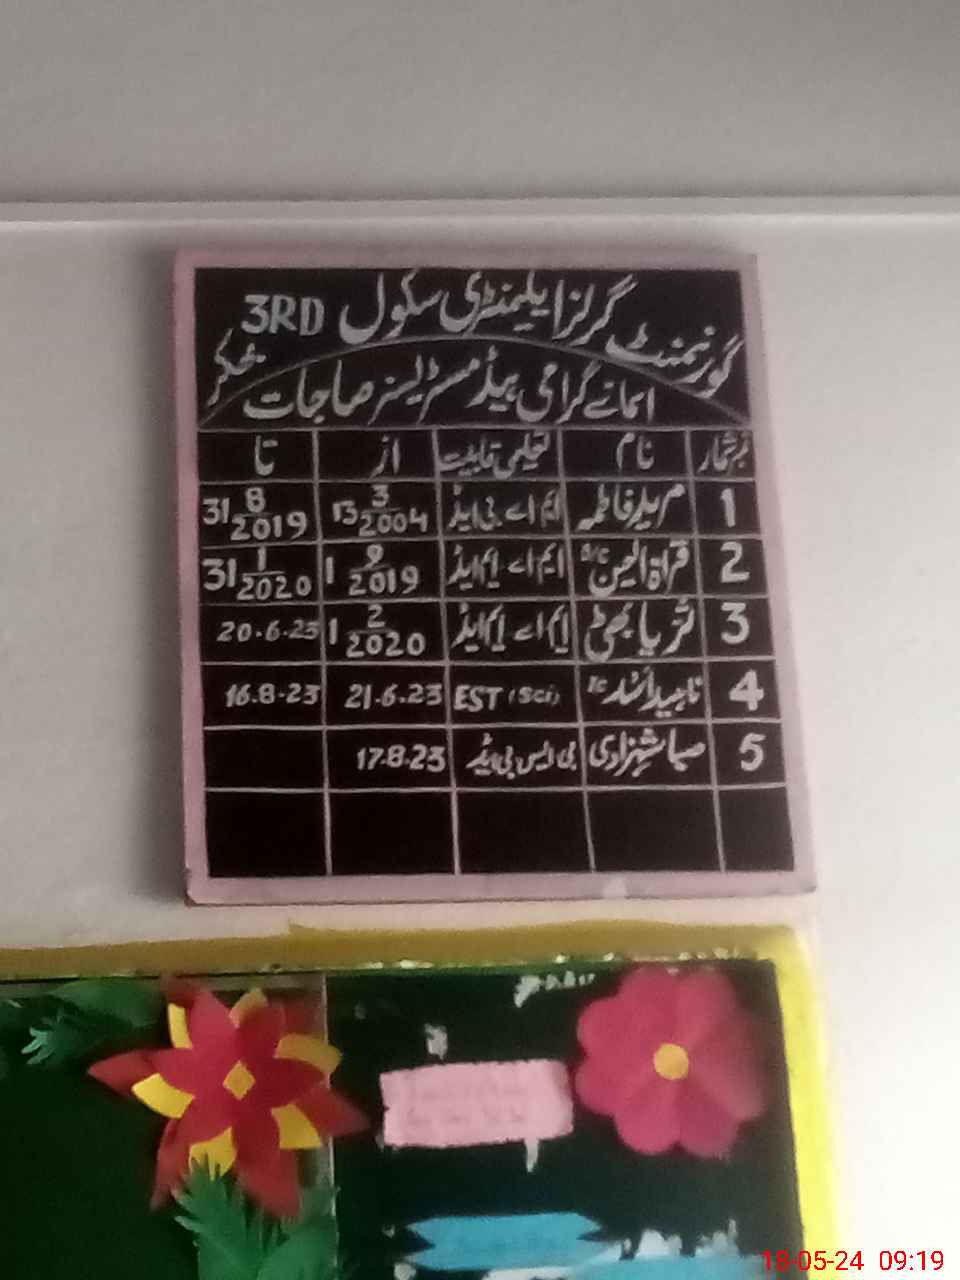 گورنمنٹ گرلز ایلیمنٹری سکول 3RD بھکر
اسمائے گرامی ہیڈ مسٹریسز صاحبات
نمبر شمار نام تعلیمی قابلیت از تا
1 مریلہ فاطمہ ایم اے بی ایڈ 13 3/2004 31 8/2019
2 قراۃ العین o/c ایم اے ایم ایڈ 1 9/2019 31 1/2020
3 ثریا بھٹی ایم اے ایم ایڈ 1 2/2020 20-6-23
4 ناہید راشد EST (Sci) 21-6-23 16-8-23
5 صبا شہزادی بی ایس بی ایڈ 17-8-23
18-05-24 09:19